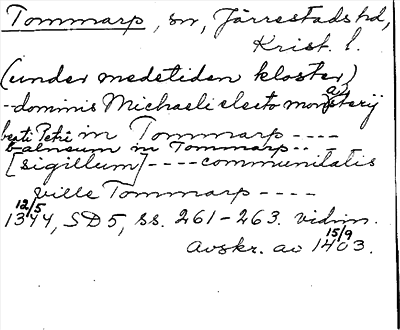 Tommarp, sn, Järrestads hd,
Krist. l.
(under medetiden kloster)
- dominis Michaeli electo monasterij
beati Petri in Tommarp ----
balneum in Tommarp ----
[sigillum] ---- communitatis
ville Tommarp ----
12/5 1344, SD 5, ss. 261-263. vidim.
avskr. av 15/9 1403.